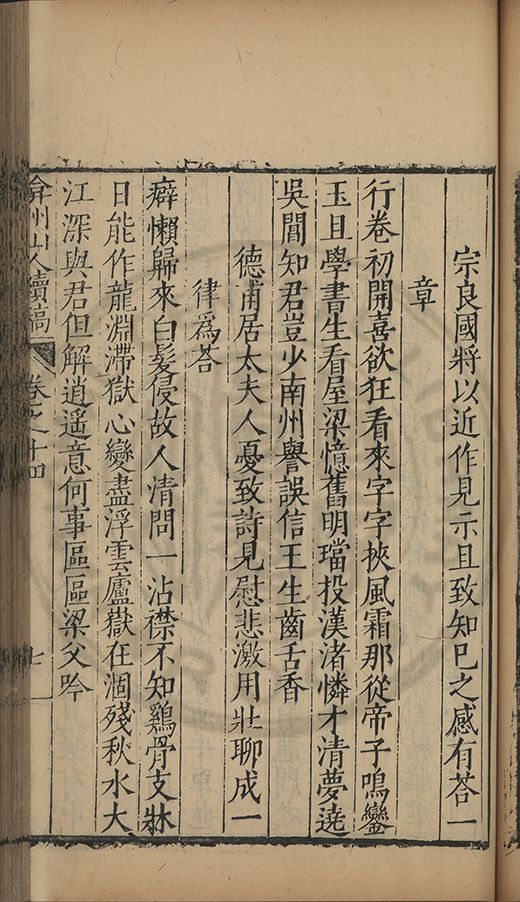 宗良國將以近作見示且致知巳之感有荅一
章
行卷初開喜欲狂看來字字挾風霜那從帝子鳴鑾
玉且學書生看屋梁憶舊明璫投漢渚憐才清夢遶
吳閶知君豈少南州譽誤信王生齒舌香
德甫居太夫人憂致詩見慰悲激用壯聊成一
律爲荅
癖懶歸來白髮侵故人清問一沾襟不知鷄骨支牀
日能作龍淵滯獄心變盡浮雲廬嶽在涸殘秋水大
江深與君但解逍遙意何事區區梁父吟
弇州山人續稿 卷之十四 七